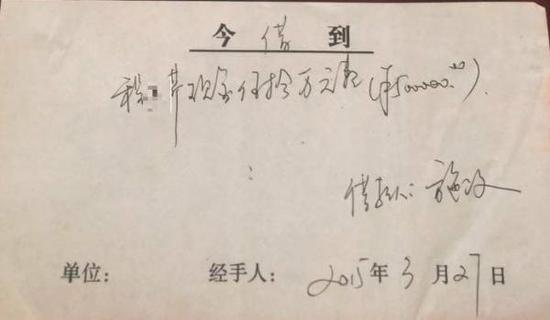 今 借 到
程 芹现金伍拾万元整(¥500000.00).
借款人: 施
单位: 经手人: 2015年3月27日